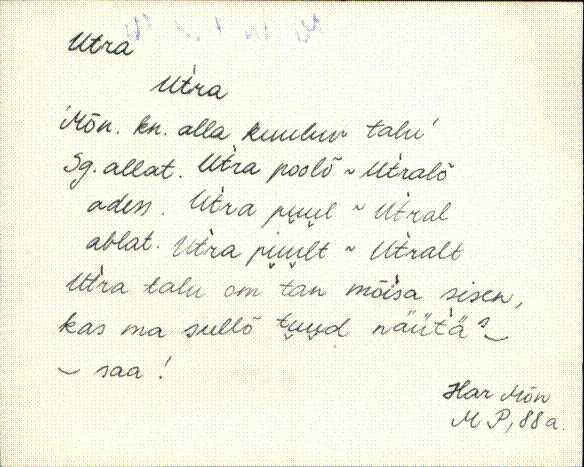 Utra
Ut̀ra
'Mõn. kn. alla kuuluv talu'
Sg. allat. Ut̀ra poolõ ~ Ut̀ralõ
adess. Ut̀ra pu̬u̬l ~ Ut̀ral
ablat. Ut̀ra pu̬u̬lt ~ Ut̀ralt
Ut̀ra talu om tan mõìsa sisen,
kas ma sullõ tu̬u̬d näütäˀ‿
‿ saa!
Har Mõn
M P, 88 a.